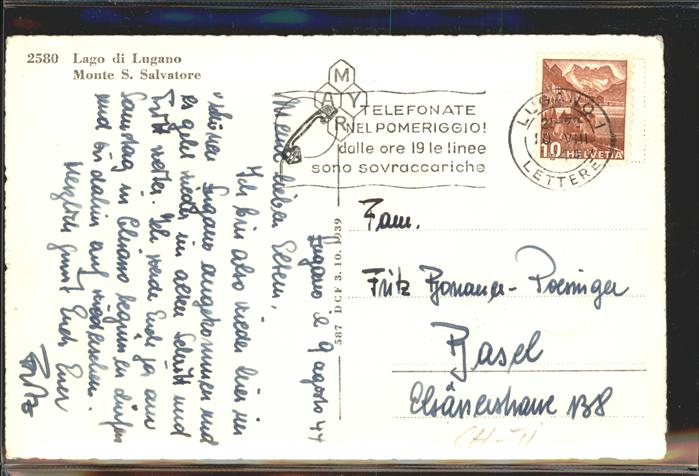 2580 Lago di Lugano
Monte S. Salvatore
MARY
TELEFONATE
NEL POMERIGGIO!
dalle ore 19 le linee
sono sovraccariche
LUGANO 1
LETTERE
10 HELVETIA
587 DCF 3.10.1939
Lugano il 9 agosto 44
Meine lieben Eltern,
Ich bin also wieder hier im
schönen Lugano angekommen und
es geht wieder im alten Schritt und
Tritt weiter. Ich werde Euch ja am
Samstag in Chiasso begrüssen dürfen
und bis dahin auf Wiedersehen.
Herzlich grüsst Euch Euer
Fritz
Fam.
Fritz Bonauer-Poeninger
Basel
Elsässerstrasse 138
CH-TI